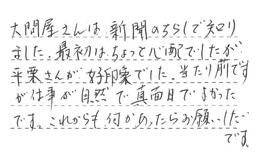 大問屋さんは、新聞のちらしで知り
ました。最初はちょっと心配でしたが
平栗さんが好印象でした。当たり前です
が仕事が自然で真面目でよかった
です。これからも何かあったらお願いしたい
です。